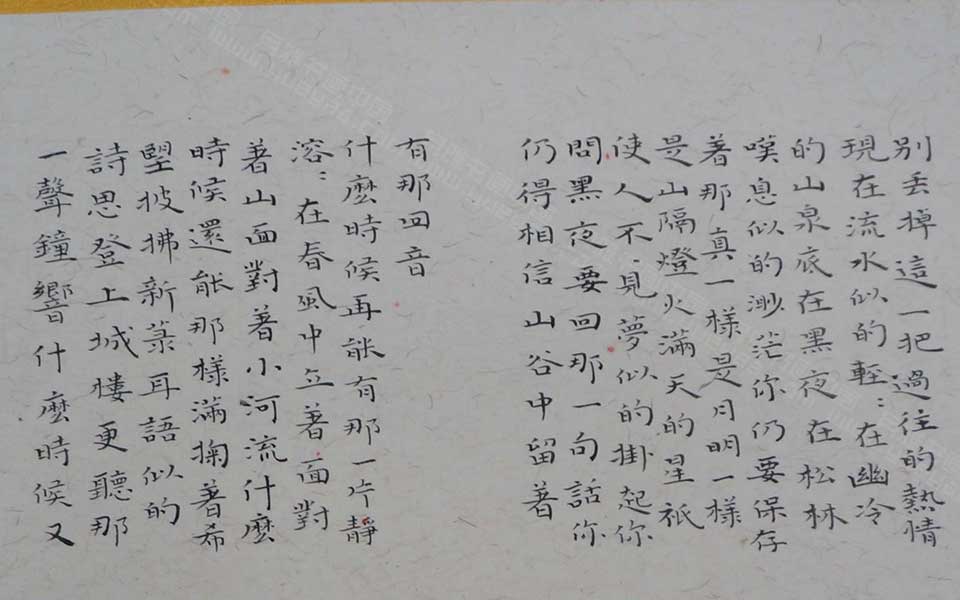 别丢掉這一把過往的熱情
現在流水似的輕：在幽冷
的山泉底在黑夜在松林
嘆息似的渺茫你仍要保存
著那真一樣是月明一樣
是山隔燈火滿天的星衹
使人不見夢似的掛起你
問黑夜要回那一句話你
仍得相信山谷中留著
有那回音
什麼時候再能有那一片靜
溶：在春風中立著面對
著山面對著小河流什麼
時候還能那樣滿掬著希
望披拂新菉耳語似的
詩思登上城樓更聽那
一聲鐘響什麼時候又